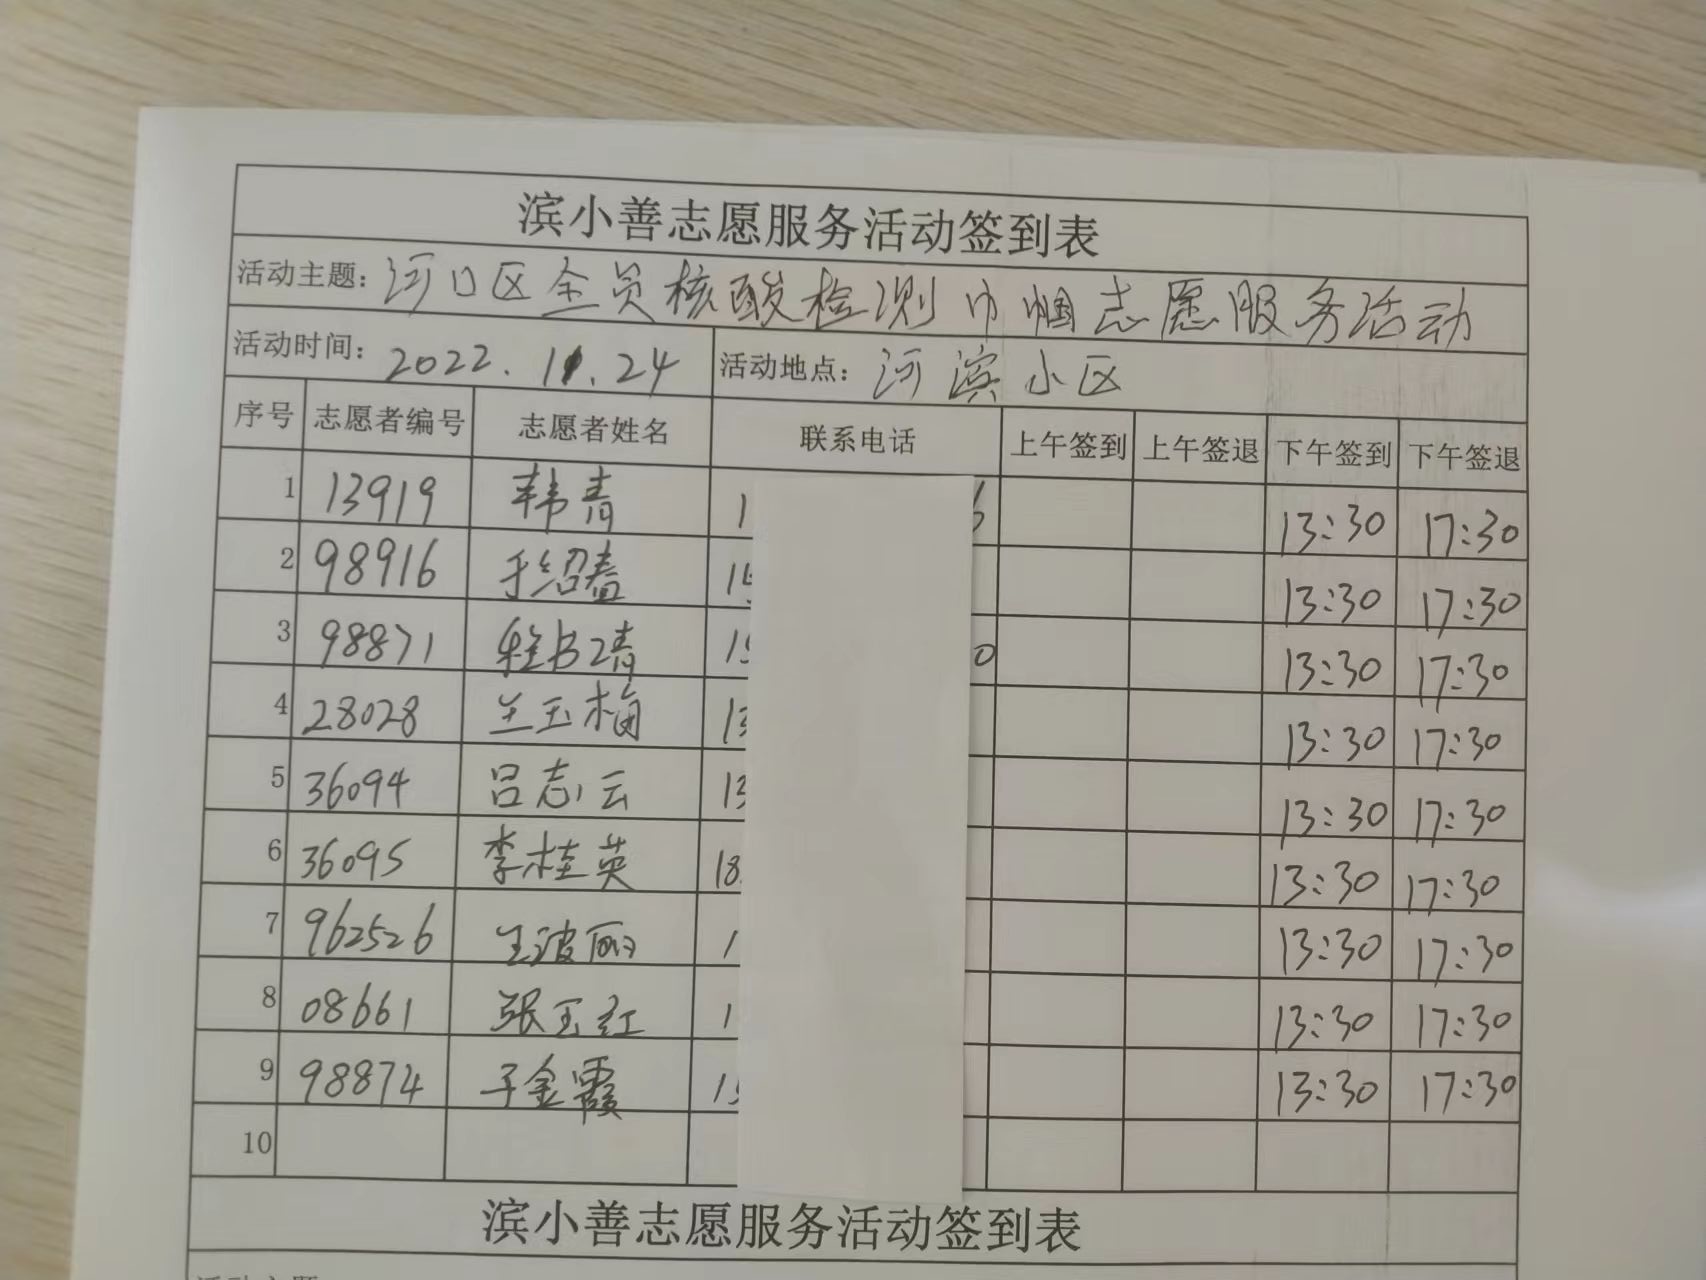 滨小善志愿服务活动签到表
活动主题：河口区全员核酸检测巾帼志愿服务活动
活动时间：2022.11.24 活动地点：河滨小区
序号 志愿者编号 志愿者姓名 联系电话 上午签到 上午签退 下午签到 下午签退
1 13919 韩青 1 6 13:30 17:30
2 98916 于绍春 15 13:30 17:30
3 98871 程书靖 15 0 13:30 17:30
4 28028 兰玉梅 13 13:30 17:30
5 36094 吕志云 13 13:30 17:30
6 36095 李桂英 18 13:30 17:30
7 962526 王波丽 1 13:30 17:30
8 08661 张玉红 1 13:30 17:30
9 98874 于金霞 15 13:30 17:30
10
滨小善志愿服务活动签到表